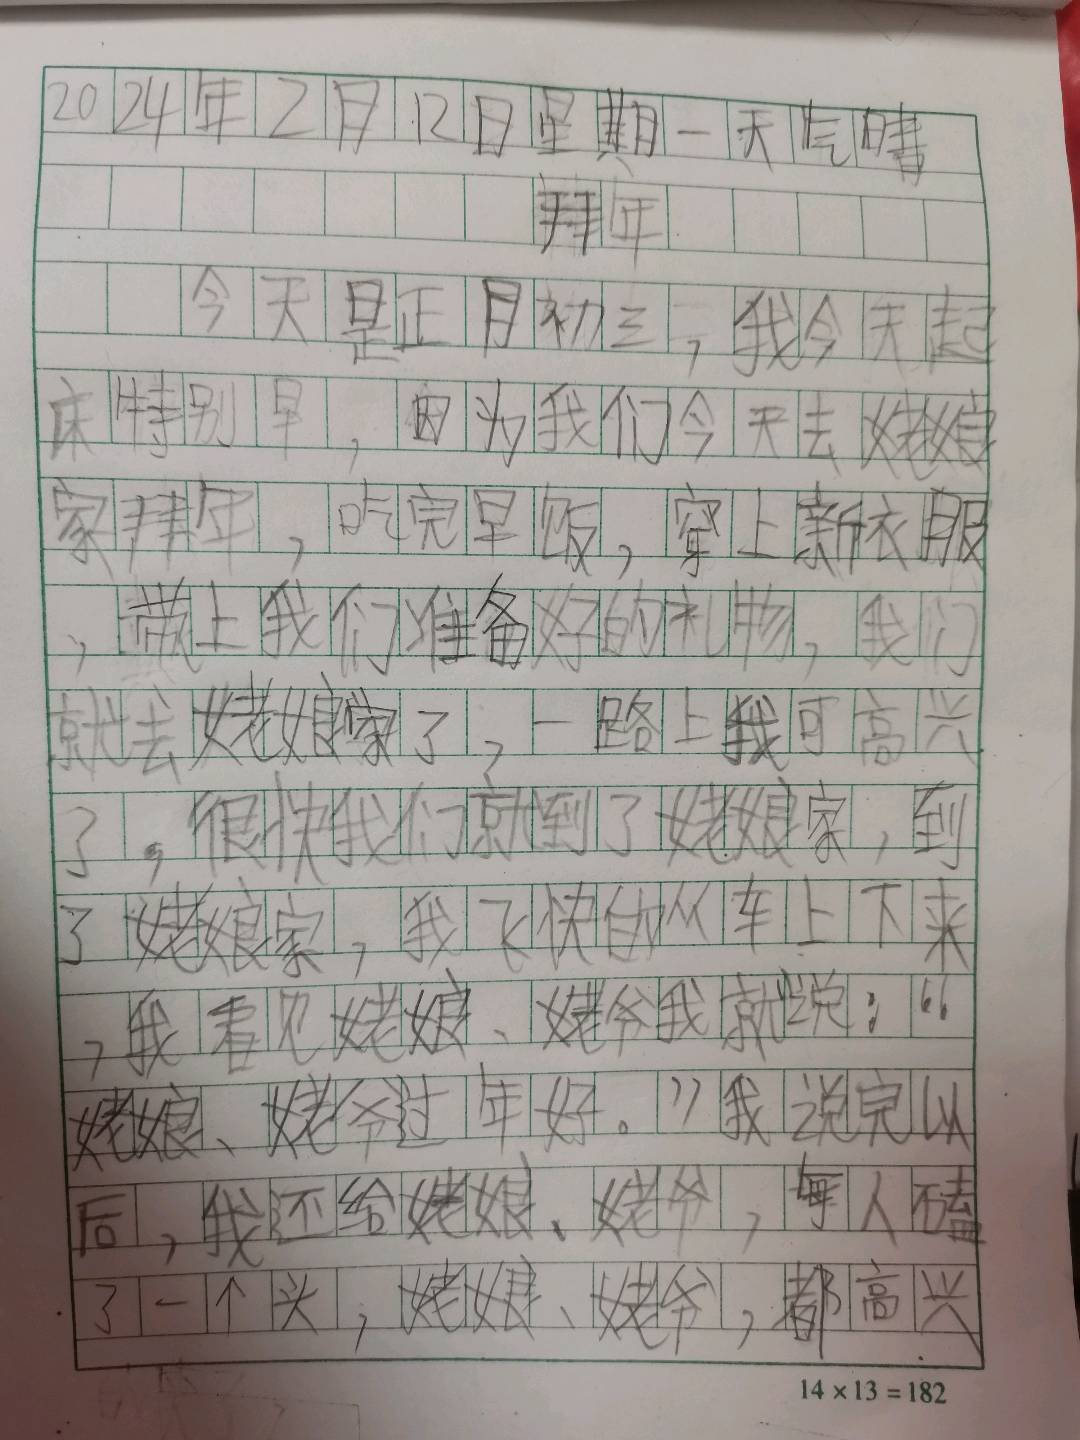 2024年2月12日星期一天气晴
拜年
今天是正月初三,我今天起
床特别早,因为我们今天去姥娘
家拜年,吃完早饭,穿上新衣服
,带上我们准备好的礼物,我们
就去姥娘家了,一路上我可高兴
了,很快我们就到了姥娘家,到
了姥娘家,我飞快的从车上下来
,我看见姥娘、姥爷我就说:“
姥娘、姥爷过年好。”我说完以
后,我还给姥娘、姥爷,每人磕
了一个头,姥娘、姥爷,都高兴
14×13=182